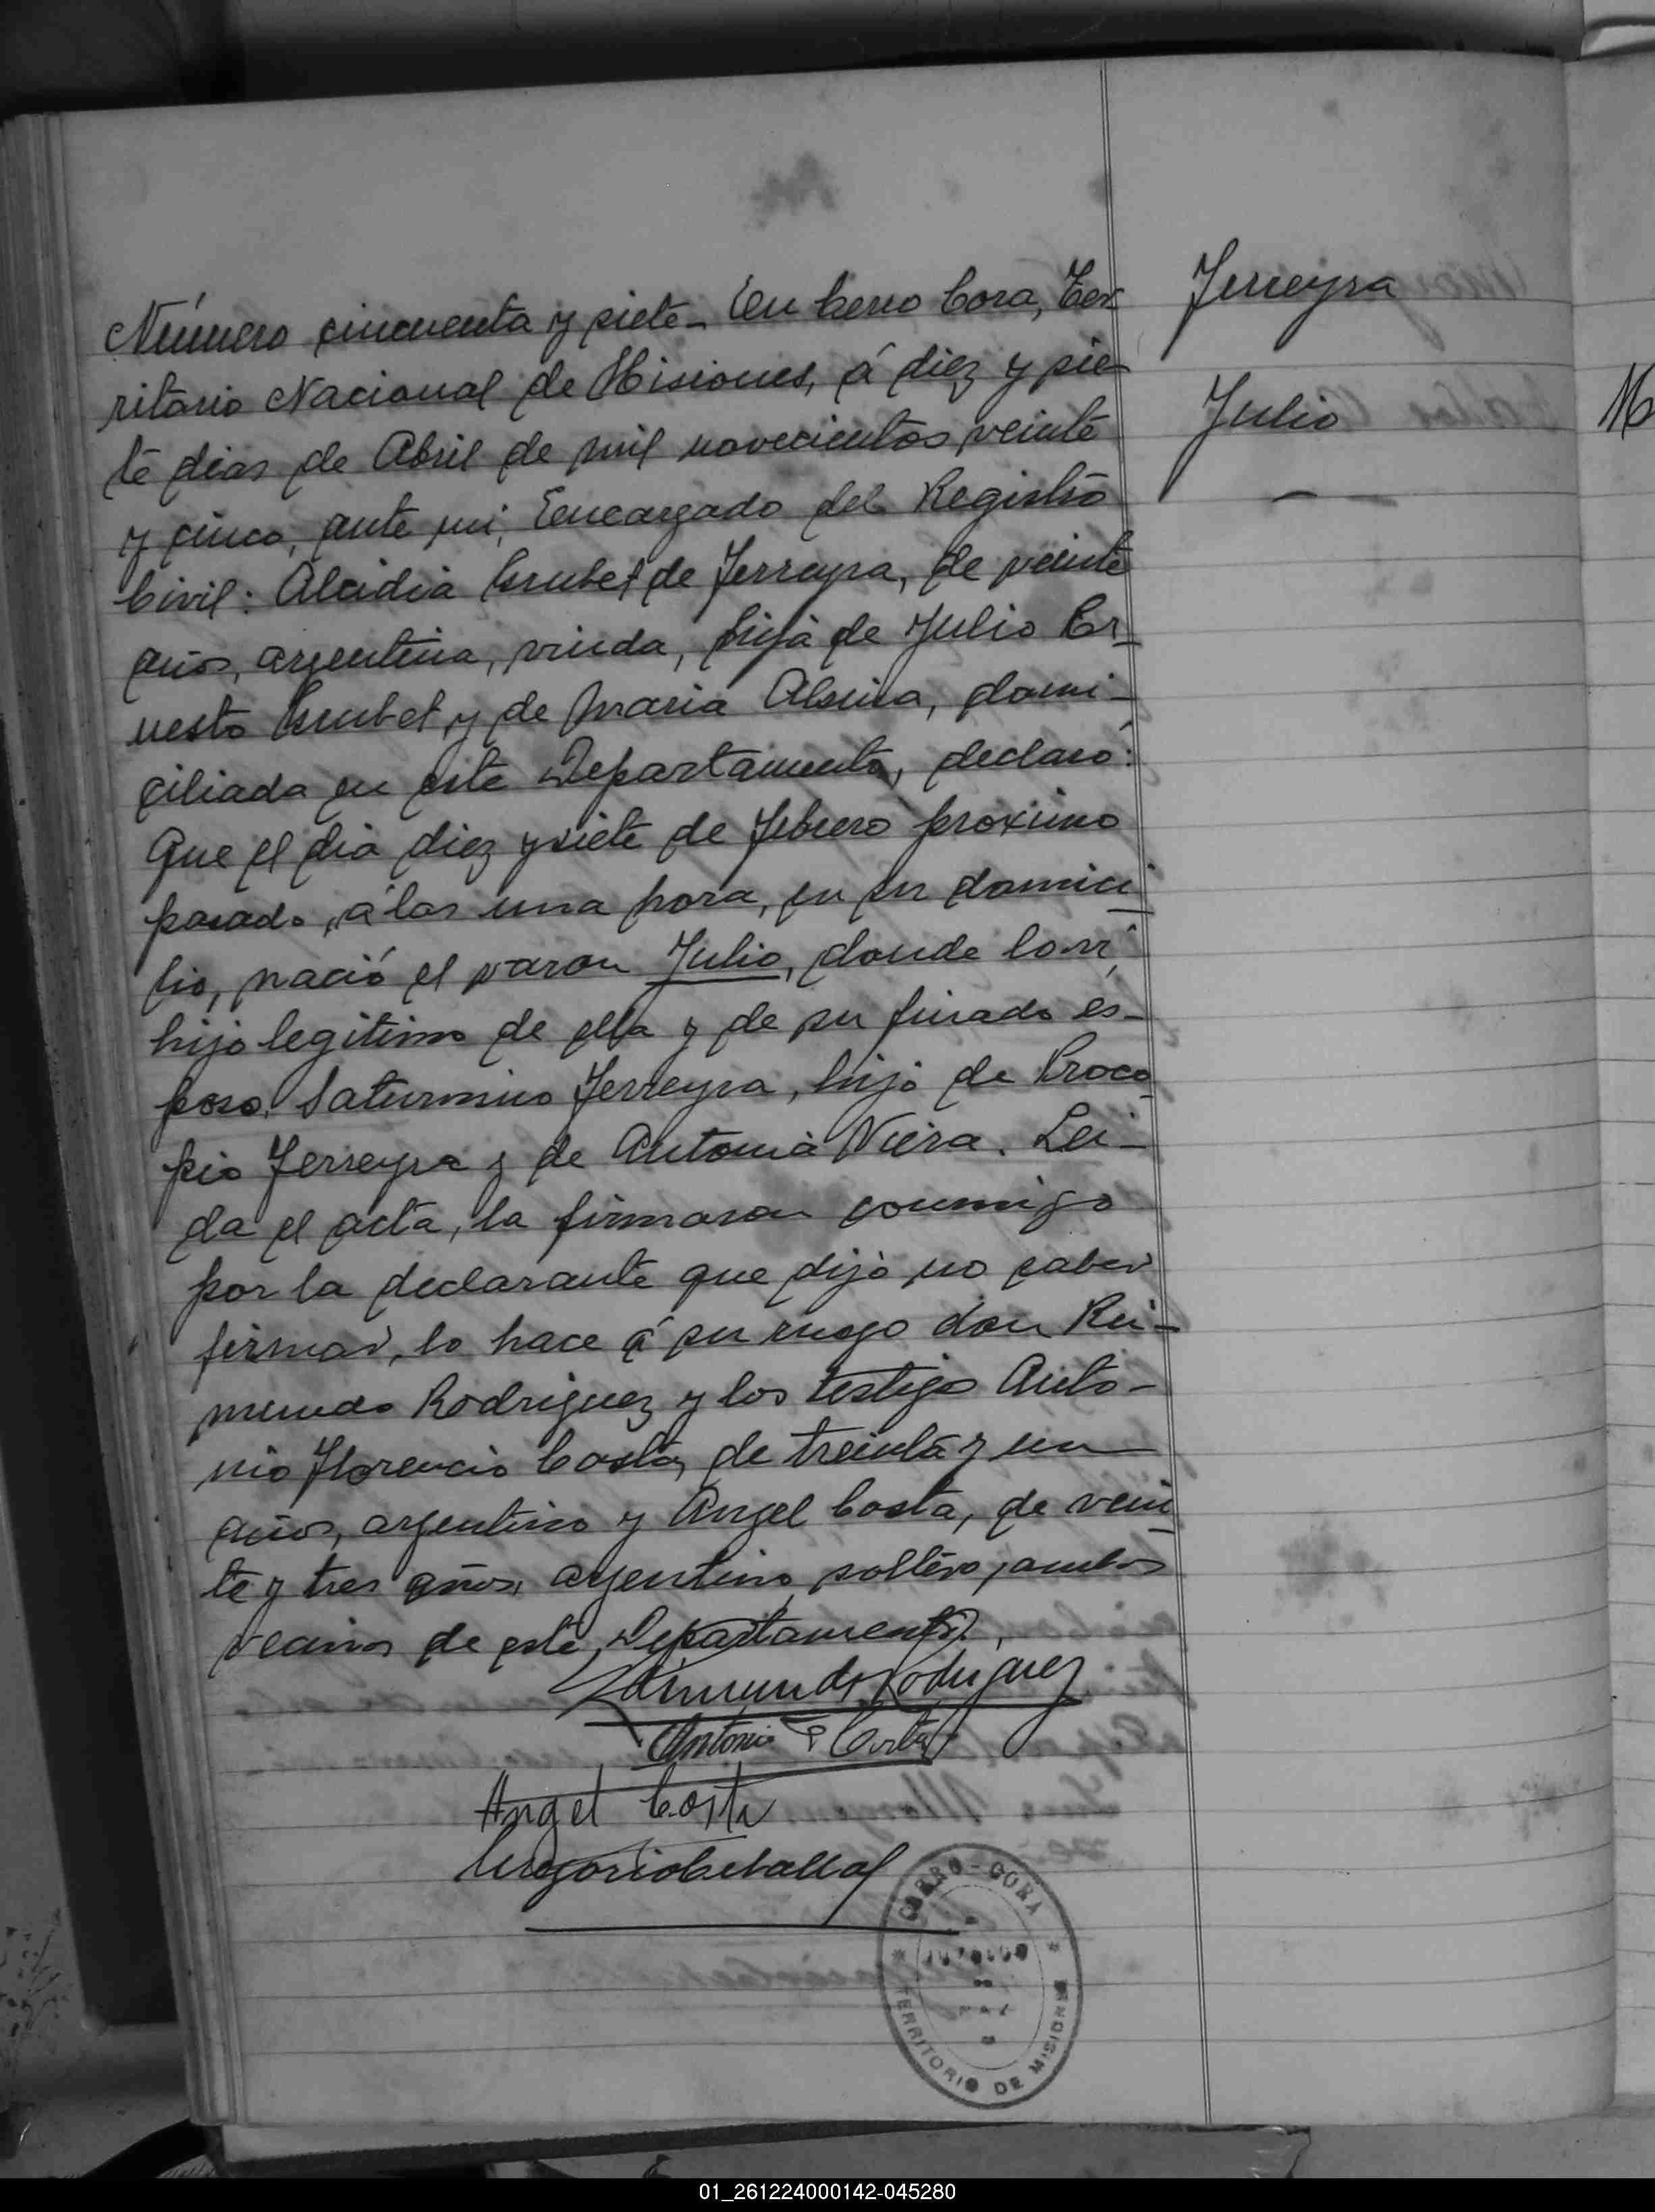 Número cincuenta y siete - En Cerro Cora, Ter
ritorio Nacional de Misiones, á diez y sie-
te dias de Abril de mil novecientos veinte
y cinco, ante mi, Encargado del Registro
Civil: Alcidia de Ferreyra, de veinte
años, argentina, viuda, hija de Julio Er-
nesto y de Maria Alsina, domi-
ciliada en este Departamento, declaró:
Que el dia diez y siete de febrero proximo
pasado, á las una hora, en su domici
lio, nació el varon Julio, donde
hijo legitimo de ella y de su finado es-
poso, Saturnino Ferreyra, hijo de Proco
pio Ferreyra y de Antonia Viera. Lei-
da el acta, la firmaron conmigo
por la declarante que dijo no saber
firmar, lo hace á su ruego don Rei-
mundo Rodriguez y los testigo Anto-
nio Florencio Costa, de treinta y un
años, argentino y Angel Costa, de vein
te y tres años, argentino, soltero, ambos
vecinos de este Departamento.
Raimundo Rodriguez
Antonio F Costa
Angel Costa
Gregorio
Ferreyra
Julio
CERRO-CORÁ
JUZGADO
TERRITORIO DE MISIONES
01_261224000142-045280